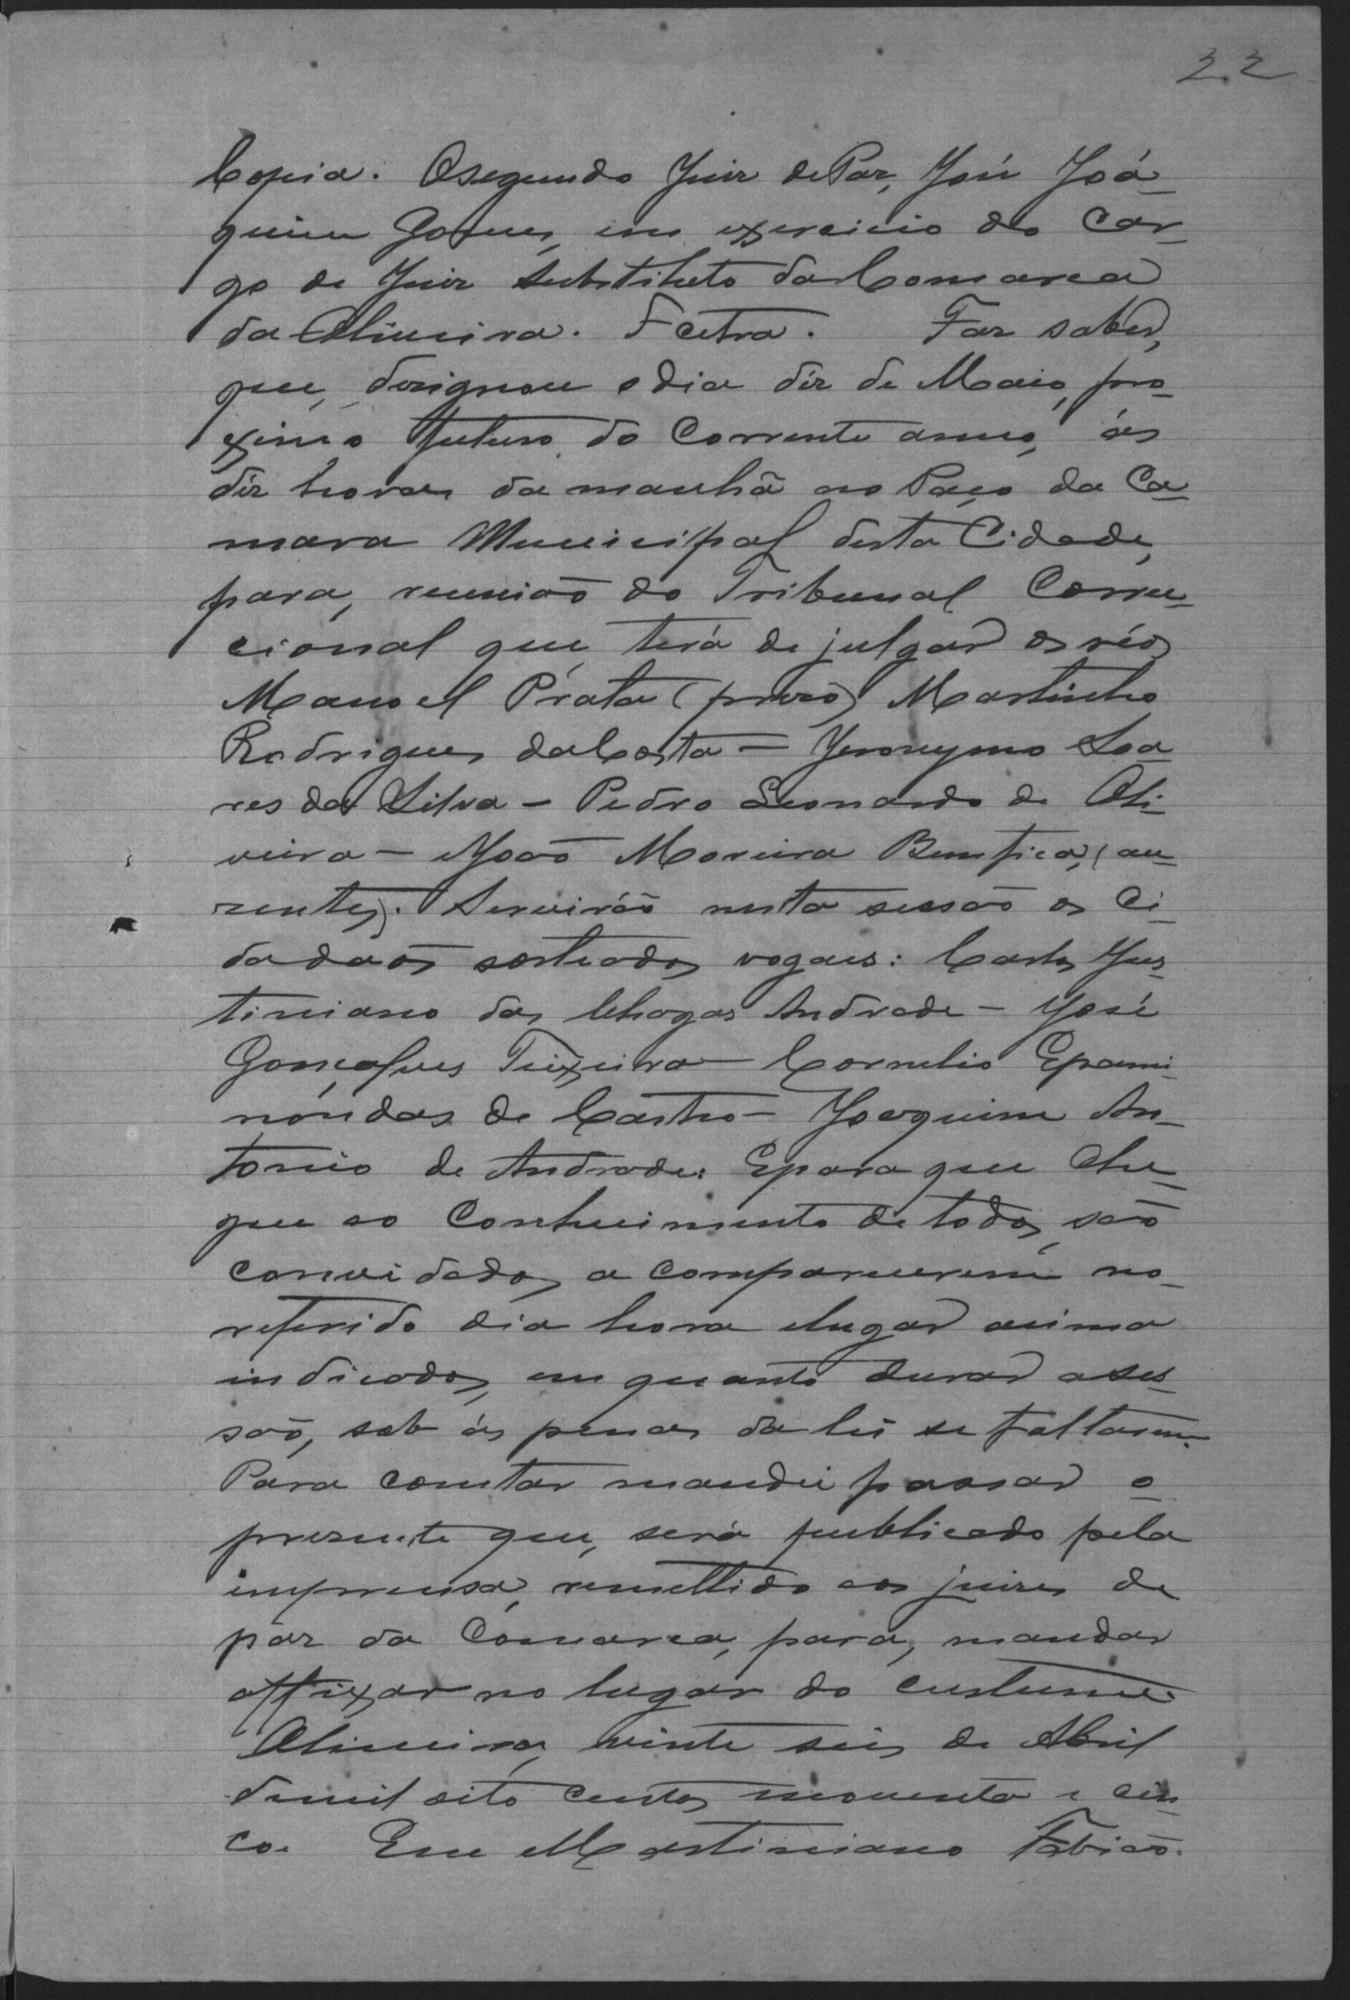 22
Copia. O segundo Juiz de Paz, José Joá-
quim Gomes, em exercicio do Car-
go de Juiz Substituto da Comarca
da Oliveira. Fcetra. Faz saber,
que, designou o dia déz de Maio, pro-
ximo futuro do Corrente anno, ás
déz horas da manhã no Paço da Ca-
mara Municipal desta Cidade,
para, reunião do Tribunal Correc-
cional que terá de julgar os réos
Manoel Prata (prezo) Martinho
Rodrigues da Costa - Jeronymo Soa-
res da Silva - Pedro Leonardo de Oli-
veira - João Moreira Bemfica, (au-
zentes). Servirão nesta sessão os Ci-
dadãos sorteados vogaes: Carlos Jus-
tiniano das Chagas Andrade - José
Gonçalves Teixeira - Cornelio Epami-
nondas de Castro - Joaquim An-
tonio de Andrade: E para que che-
gue ao Conhecimento de todos, são
convidados a comparecerem no-
referido dia hora e lugar acima
indicados, em quanto durar a ses-
são, sob ás penas da lei se faltarem.
Para constar mandei passar o
presente que, será publicado pela
imprensa, remettido aos juizes de
páz da Comarca, para, mandar
affixar no lugar do custume.
Oliveira, vinte seis de Abril
de mil oito centos noventa e cin-
co. Eu Martiniano Fabião.